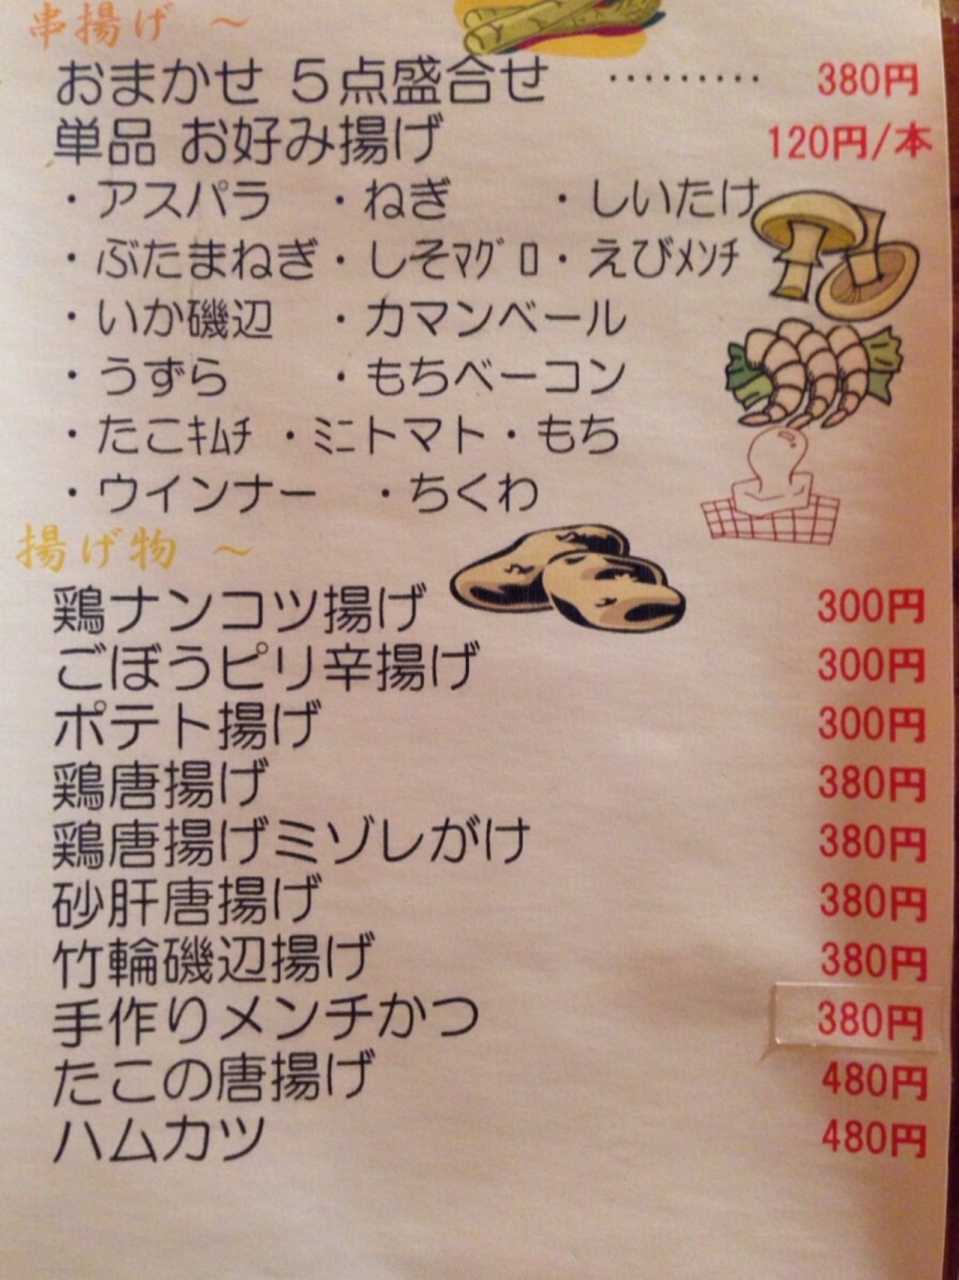 串揚げ ～
おまかせ ５点盛合せ ･････････ 380円
単品 お好み揚げ 120円/本
・アスパラ ・ねぎ ・しいたけ
・ぶたまねぎ・しそﾏｸﾞﾛ・えびﾒﾝﾁ
・いか磯辺 ・カマンベール
・うずら ・もちベーコン
・たこｷﾑﾁ ・ﾐﾆトマト・もち
・ウインナー ・ちくわ
揚げ物 ～
鶏ナンコツ揚げ 300円
ごぼうピリ辛揚げ 300円
ポテト揚げ 300円
鶏唐揚げ 380円
鶏唐揚げミゾレがけ 380円
砂肝唐揚げ 380円
竹輪磯辺揚げ 380円
手作りメンチかつ 380円
たこの唐揚げ 480円
ハムカツ 480円